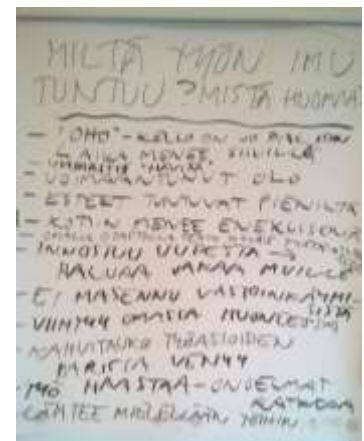 MILTÄ TYÖN IMU
TUNTUU? MISTÄ HUOMAA
- "OHO" - KELLO ON JO
AIKA MENEE SIIVILLÄ
- VOIMAANTUNUT OLO
- ESTEET TUNTUVAT PIENILTÄ
- KOTIIN MENEE ENERGISENÄ
- INNOSTUU UUDESTA →
HALUAA JAKAA MUILLE
- EI MASENNU VASTOINKÄYMI
SISTÄ
- VIIHTYY OMASSA HUONEESSA
- KAHVITAUKO TYÖASIOIDEN
PARISSA VENYY
- TYÖ HAASTAA - ONGELMAT
RATKOOA
- LÄHTEE MIELELLÄÄN TÖIHIN